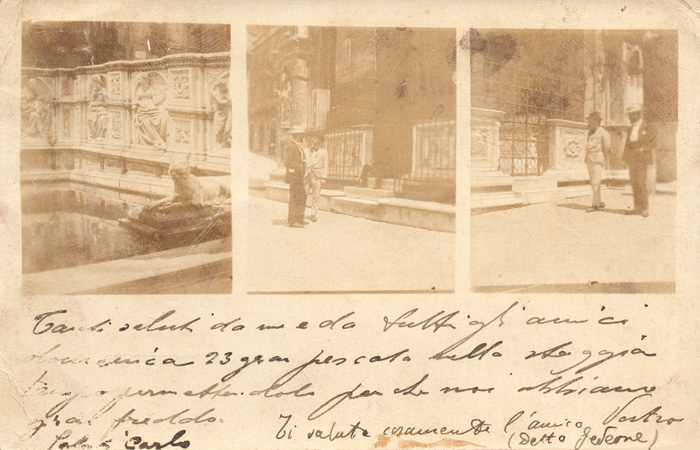 Tanti saluti da me e da tutti gli amici
domenica 23 gran pescata nella staggia
tempo permettendolo perche noi abbiamo
gran freddo.
Saluti Carlo
Ti saluta caramente l'amico Vostro
(Detto Gedeone)